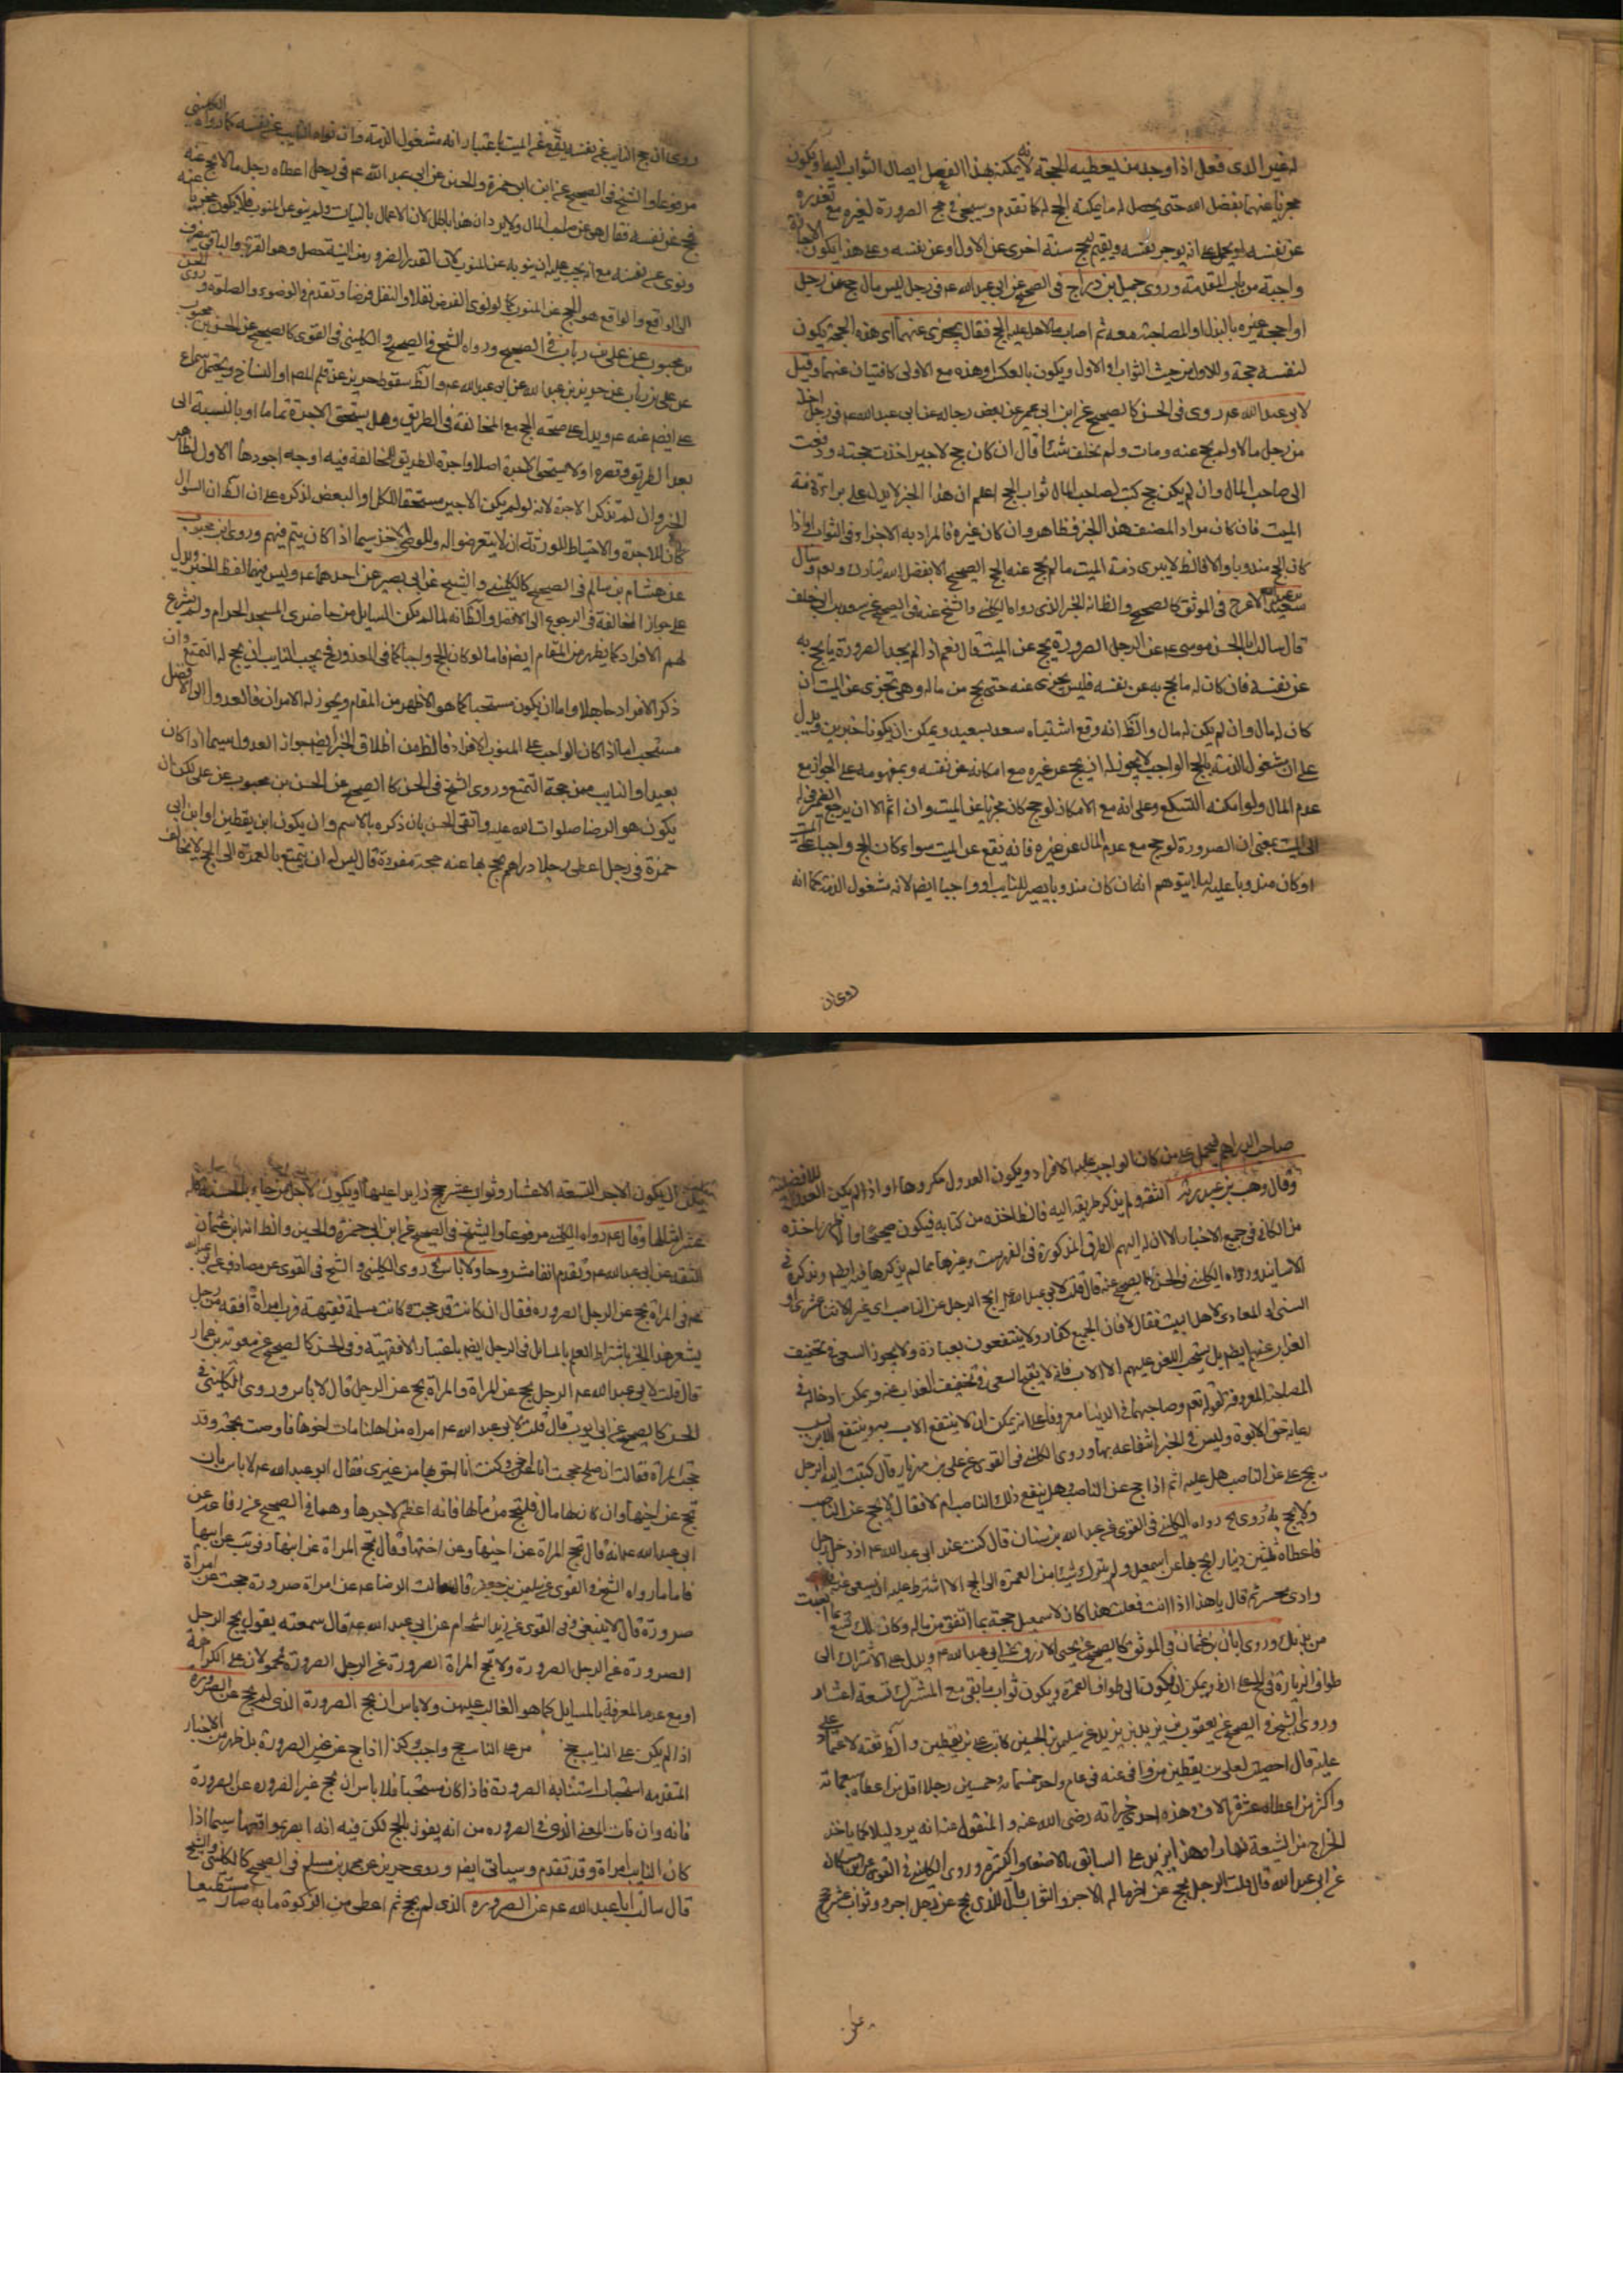 لغير الذي فعل اذا وجد من يعطيه الحجة لانه يمكنه بهذا الفعل ايصال الثواب اليه او يكون
مجزيا عنهما بفضل الله حتى يحصل له ما يمكنه الحج له كما تقدم وسيجئ في حج الصرورة لغيره مع تعذره
عن نفسه او يحمل على ان يوجر نفسه ويقيم لحج سنة اخرى عن الاول او عن نفسه وعلى هذا يكون الاجارة
واجبة من باب المقدمة وروى جميل بن دراج في الصحيح عن ابي عبد الله عم في رجل ليس له مال حج عن رجل
او احجه غيره بالبذل او المصاحبة معه ثم اصاب مالا هل عليه الحج فقال يجزي عنهما اي هذه الحجة يكون
لنفسه حجة وللاول من حيث الثواب او الاول ويكون بالعكس او هذه مع الاولى كافيتان عنهما وقيل
لابي عبد الله عم روى في الحسن كالصحيح عن ابن ابي عمير عن بعض رجاله عن ابي عبد الله عم في رجل اخذ
من رجل مالا ولم يحج عنه ومات ولم يخلف شيئا قال ان كان حج الاجير اخذت حجته ودفعت
الى صاحب المال وان لم يكن حج كتب لصاحب المال ثواب الحج اعلم ان هذا الخبر لا يدل على براءة ذمة
الميت فان كان مراد المصنف هذا الخبر فظاهر وان كان غيره فالمراد به الاجزاء في الثواب او اذا
كان الحج مندوبا والا فالظ لا يبرى ذمة الميت ما لم يحج عنه الحج الصحيح الا بفضل الله تبارك وتعالى وسال
سعيد بن عبد الله الاعرج في الموثق كالصحيح والظ انه الخبر الذي رواه الكليني والشيخ عنه في الصحيح عن سعد بن ابي خلف
قال سالت ابا الحسن موسى عم عن الرجل الصرورة يحج عن الميت قال نعم اذا لم يجد الصرورة ما يحج به
عن نفسه فان كان له ما يحج به عن نفسه فليس يجزي عنه حتى يحج من ماله وهي تجزي عن الميت ان
كان له مال وان لم يكن له مال والظ انه وقع اشتباه سعد بسعيد ويمكن ان يكونا خبرين ويدل
على ان مشغول الذمة بالحج الواجب لا يجوز له ان يحج عن غيره مع امكانه عن نفسه وبمفهومه على الجواز مع
عدم المال ولو امكنه التسكع وعلى انه مع الامكان لو حج كان مجزيا عن الميت وان اثم الا ان يرجع الضمير في له
الى الميت بمعنى ان الصرورة لو حج مع عدم المال عن غيره فانه يقع عن الميت سواء كان الحج واجبا على الميت
او كان مندوبا عليه لئلا يتوهم انه ان كان مندوبا يصير للنايب او واجبا ايضا لانه مشغول الذمة كما انه
روى ان
روى ان حج النايب عن نفسه يقع عن الميت باعتبار انه مشغول الذمة وان نواه النايب عن نفسه كما رواه الكليني
مرفوعا والشيخ في الصحيح عن ابن ابي حمزة والحسين عن ابي عبد الله عم في رجل اعطاه رجل مالا يحج عنه
فحج عن نفسه فقال هي عن صاحب المال ولا يرد ان هذا باطل لان الاعمال بالنيات ولم ينو عن المنوب فلا يكون مجزيا عنه
ونوى عن نفسه مع انه يجب عليه ان ينويه عن المنوب لان القدر الضروري من النية حصل وهو القربة والباقي ينصرف
الى الواقع والواقع هو الحج عن المنوب كما لو نوى الفرض نفلا او النفل فرضا وتقدم في الوضوء والصلوة وروى الحسن
بن محبوب عن علي بن رئاب في الصحيح ورواه الشيخ في الصحيح والكليني في القوى كالصحيح عن الحسن بن محبوب
عن علي بن رئاب عن حريز بن عبد الله عن ابي عبد الله عم والظ سقوط حريز عن قلم المصنف او النساخ ويحتمل سماع
علي ايضا عنه عم ويدل على صحة الحج مع المخالفة في الطريق وهل يستحق الاجرة تماما او بالنسبة الى
بعد الطريق وقصره او لا يستحق الاجرة اصلا واجرة الطريق للمخالفة فيه اوجه اجودها الاول لظاهر
الخبر وان لم تذكر الاجرة لانه لو لم يكن الاجير مستحقا للكل او البعض لذكره على ان الظ ان السوال
كان للاجرة والاحتياط للورثة ان لا يتعرضوا له وللوصي الاخذ سيما اذا كان يتيم فيهم وروى ابن محبوب
عن هشام بن سالم في الصحيح كالكليني والشيخ عن ابي بصير عن احدهما عم وليس فيهما لفظ الخير ويدل
على جواز المخالفة في الرجوع الى الافضل والظ انه لما لم يكن السايل من حاضري المسجد الحرام ولم يشرع
لهم الافراد كما يظهر من المقام ايضا فاما لو كان الحج واجبا كما في المعذور فيجب النايب ان يحج له التمتع وان
ذكر الافراد جاهلا واما ان يكون مستحبا كما هو الاظهر من المقام ويجوز له الامران فالعدول الى الافضل
مستحب اما اذا كان الواجب على المنوب الافراد فالظ من اطلاق الخبر ايضا جواز العدول سيما اذا كان
بعيدا والنايب ممن حجة التمتع وروى الشيخ في الحسن كالصحيح عن الحسن بن محبوب عن علي لكن ان
يكون هو الرضا صلوات الله عليه واتقى الحسن بان ذكره بالاسم وان يكون ابن يقطين او ابن ابي
حمزة في رجل اعطى رجلا دراهم يحج بها عنه حجة مفردة قال ليس له ان يتمتع بالعمرة الى الحج لا يخالف
صاحب الدراهم فيحمل على من كان الواجب عليه الافراد ويكون العدول مكروها او اذا لم يكن العدول للافضلية
وقال وهب بن عبد ربه الثقة ولم يذكر طريقه اليه فالظ اخذه من كتابه فيكون صحيحا او
من الكافي في جميع الاخبار الا ان له اليهم الطرق المذكورة في الفهرست وغيرها مما لم يذكرها فيه ايضا ويذكره في
الاسانيد ورواه الكليني في الحسن كالصحيح عنه قال قلت لابي عبد الله عم ايحج الرجل عن الناصب اي غير الاثنا عشري او
السني او المعادي لاهل البيت فقال لا فان الجميع كفار ولا ينتفعون بعبادة ولا يجوز السعي في تخفيف
العذاب عنهم ايضا بل يستحب اللعن عليهم الا الاب فانه لا يقبح السعي في تخفيف العذاب عنه ويمكن ادخاله في
المصاحبة بالمعروف لقوله تعالى وصاحبهما في الدنيا معروفا على انه يمكن ان لا ينتفع الاب به وينتفع الابن بسبب
رعاية حق الابوة وليس في الخبر انتفاعه بها وروى الكليني في القوى عن علي بن مهزيار قال كتبت اليه الرجل
يحج عن الناصب هل عليه اثم اذا حج عن الناصب وهل ينفع ذلك الناصب ام لا فقال لا يحج عن الناصب
ولا يحج به وروى رواه الكليني في القوى عن عبد الله بن سنان قال كنت عند ابي عبد الله عم اذ دخل رجل
فاعطاه ثلثين دينارا يحج بها عن اسمعيل ولم يترك شيئا من العمرة الى الحج الا اشترط عليه ان يسعى في
وادي محسر ثم قال يا هذا اذا انت فعلت هذا كان لاسمعيل حجة بما انفق من ماله وكان لك تسع بما اتعبت
من بدنك وروى ابان بن عثمان في الموثق كالصحيح عن يحيى الازرق عن ابي عبد الله عم ويدل على الاشتراك الى
طواف الزيارة في الحج على الظ ويمكن ان يكون الى طواف العمرة ويكون ثواب ما بقي مع المشترك تسعة اعشار
وروى الشيخ في الصحيح عن يعقوب بن يزيد عن سليمن بن الحسين كاتب علي بن يقطين والظ ثقته لاعتماد علي
عليه قال احصيت لعلي بن يقطين من وافى عنه في عام واحد خمسمائة وخمسين رجلا اقل من اعطاه سبعمائة
واكثر من اعطاه عشرة الاف وهذه احدى خيراته رضي الله عنه والمنقول عنه انه يرد ليلا ما ياخذ
الخراج من الشيعة نهارا وهذا يزيد على السابق بالاضعاف الكثيرة وروى الكليني في القوى عن ابن مسكان
عن ابي عبد الله قال قلت الرجل يحج عن اخر ما له من الاجر والثواب قال للذي يحج عن رجل اجر وثواب عشر حجج
على
يمكن ان يكون الاجر للتسعة الاعشار وثواب عشر حجج زايدا عليها او يكون لاجل من جاء بالحسنة فله
عشر امثالها وقال عم رواه الكليني مرفوعا والشيخ في الصحيح عن ابن ابي حمزة والحسين والظ انه ابن عثمان
الثقة عن ابي عبد الله عم وتقدم انفا مشروحا ولا باس روى الكليني والشيخ في القوى عن مصادف عن ابي عبد الله
عم في المراة تحج عن الرجل الصرورة فقال ان كانت قد حجت وكانت مسلمة فقيهة فرب امراة افقه من رجل
يشعر هذا الخبر باشتراط العلم بالمسائل في الرجل ايضا باعتبار الافقهية وفي الحسن كالصحيح عن معوية بن عمار
قال قلت لابي عبد الله عم الرجل يحج عن المراة والمراة تحج عن الرجل قال لا باس وروى الكليني في
الحسن كالصحيح عن ابي ايوب قال قلت لابي عبد الله عم امراة من اهلنا مات اخوها فاوصى بحجة وقد
حجت المراة فقالت ان صلح حججت انا عن اخي وكنت انا احق بها من غيري فقال ابو عبد الله عم لا باس بان
تحج عن اخيها وان كان لها مال فلتحج من مالها فانه اعظم لاجرها وهما في الصحيح عن رفاعة عن
ابي عبد الله عم انه قال تحج المراة عن اخيها وعن اختها وقال تحج المراة عن ابنها وفي يب عن ابيها
فاما ما رواه الشيخ في القوى عن سليمن بن جعفر قال سالت الرضا عم عن امراة صرورة حجت عن امراة
صرورة قال لا ينبغي وفي القوى عن زيد الشحام عن ابي عبد الله عم قال سمعته يقول يحج الرجل
الصرورة عن الرجل الصرورة ولا تحج المراة الصرورة عن الرجل الصرورة فمحمولان على الكراهة
او مع عدم المعرفة بالمسايل كما هو الغالب عليهن ولا باس ان يحج الصرورة الذي لم يحج عن الصرورة
اذا لم يكن على النايب حج من على النايب حج واجب وكذا اذا حج عن غير الصرورة بل ظهر من الاخبار
المتقدمة استحباب استنابة الصرورة فاذا كان مستحبا فلا باس ان يحج غير الصرورة عن الصرورة
فانه وان فات المعنى الذي في الصرورة من انه يفوز بالحج لكن فيه انه ابصر بمواقعها سيما اذا
كان النايب امراة وقد تقدم وسياتي ايضا وروى حريز عن محمد بن مسلم في الصحيح كالكليني والشيخ
قال سالت ابا عبد الله عم عن الصرورة الذي لم يحج ثم اعطى من الزكوة ما به صار مستطيعا